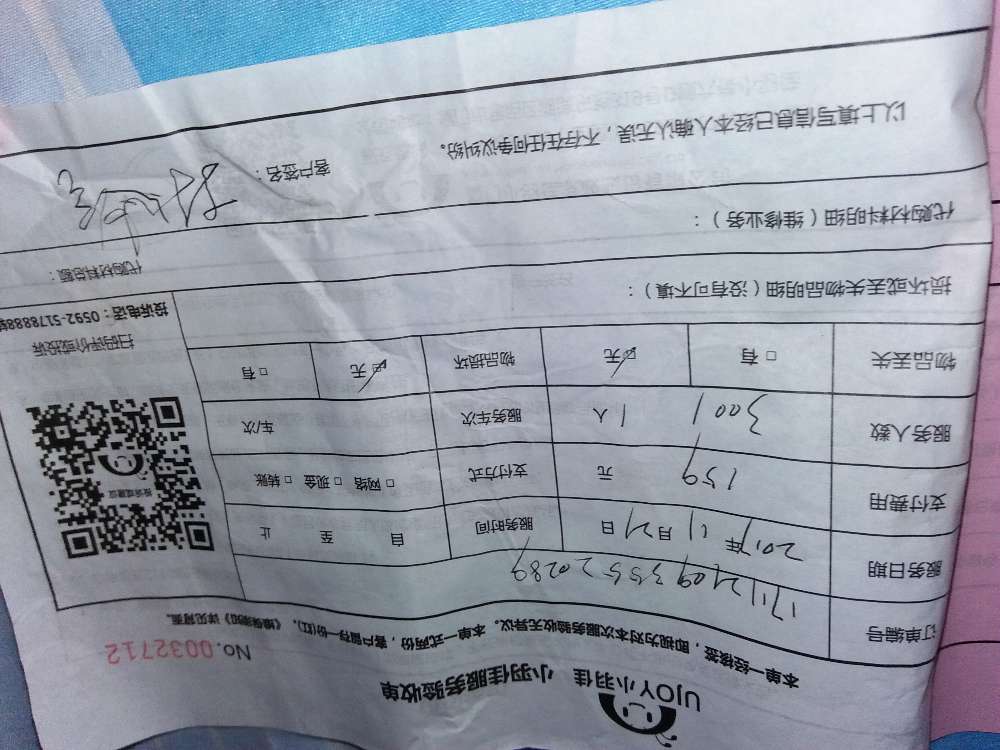 UJOY小羽佳 小羽佳服务验收单
本单一经核签，即视为对本次服务验收无异议。本单一式两份，客户留存一份(红)，《维保须知》详见背面。
No.0032712
订单编号 17112109355520289
服务日期 2017年 11月21日 服务时间 自 至 止
支付费用 159 元 支付方式 □ 网络 □ 现金 □ 转账
服务人数 3001 1人 服务车次 车/次
物品丢失 □ 有 ☑ 无 物品损坏 ☑ 无 □ 有
投诉或建议
扫码评价或投诉
投诉电话：0592-5178888转
损坏或丢失物品明细（没有可不填）：
代购材料明细（维修业务）：
代购材料总额：
以上填写信息已经本人确认无误，不存在任何争议纠纷。
客户签名：